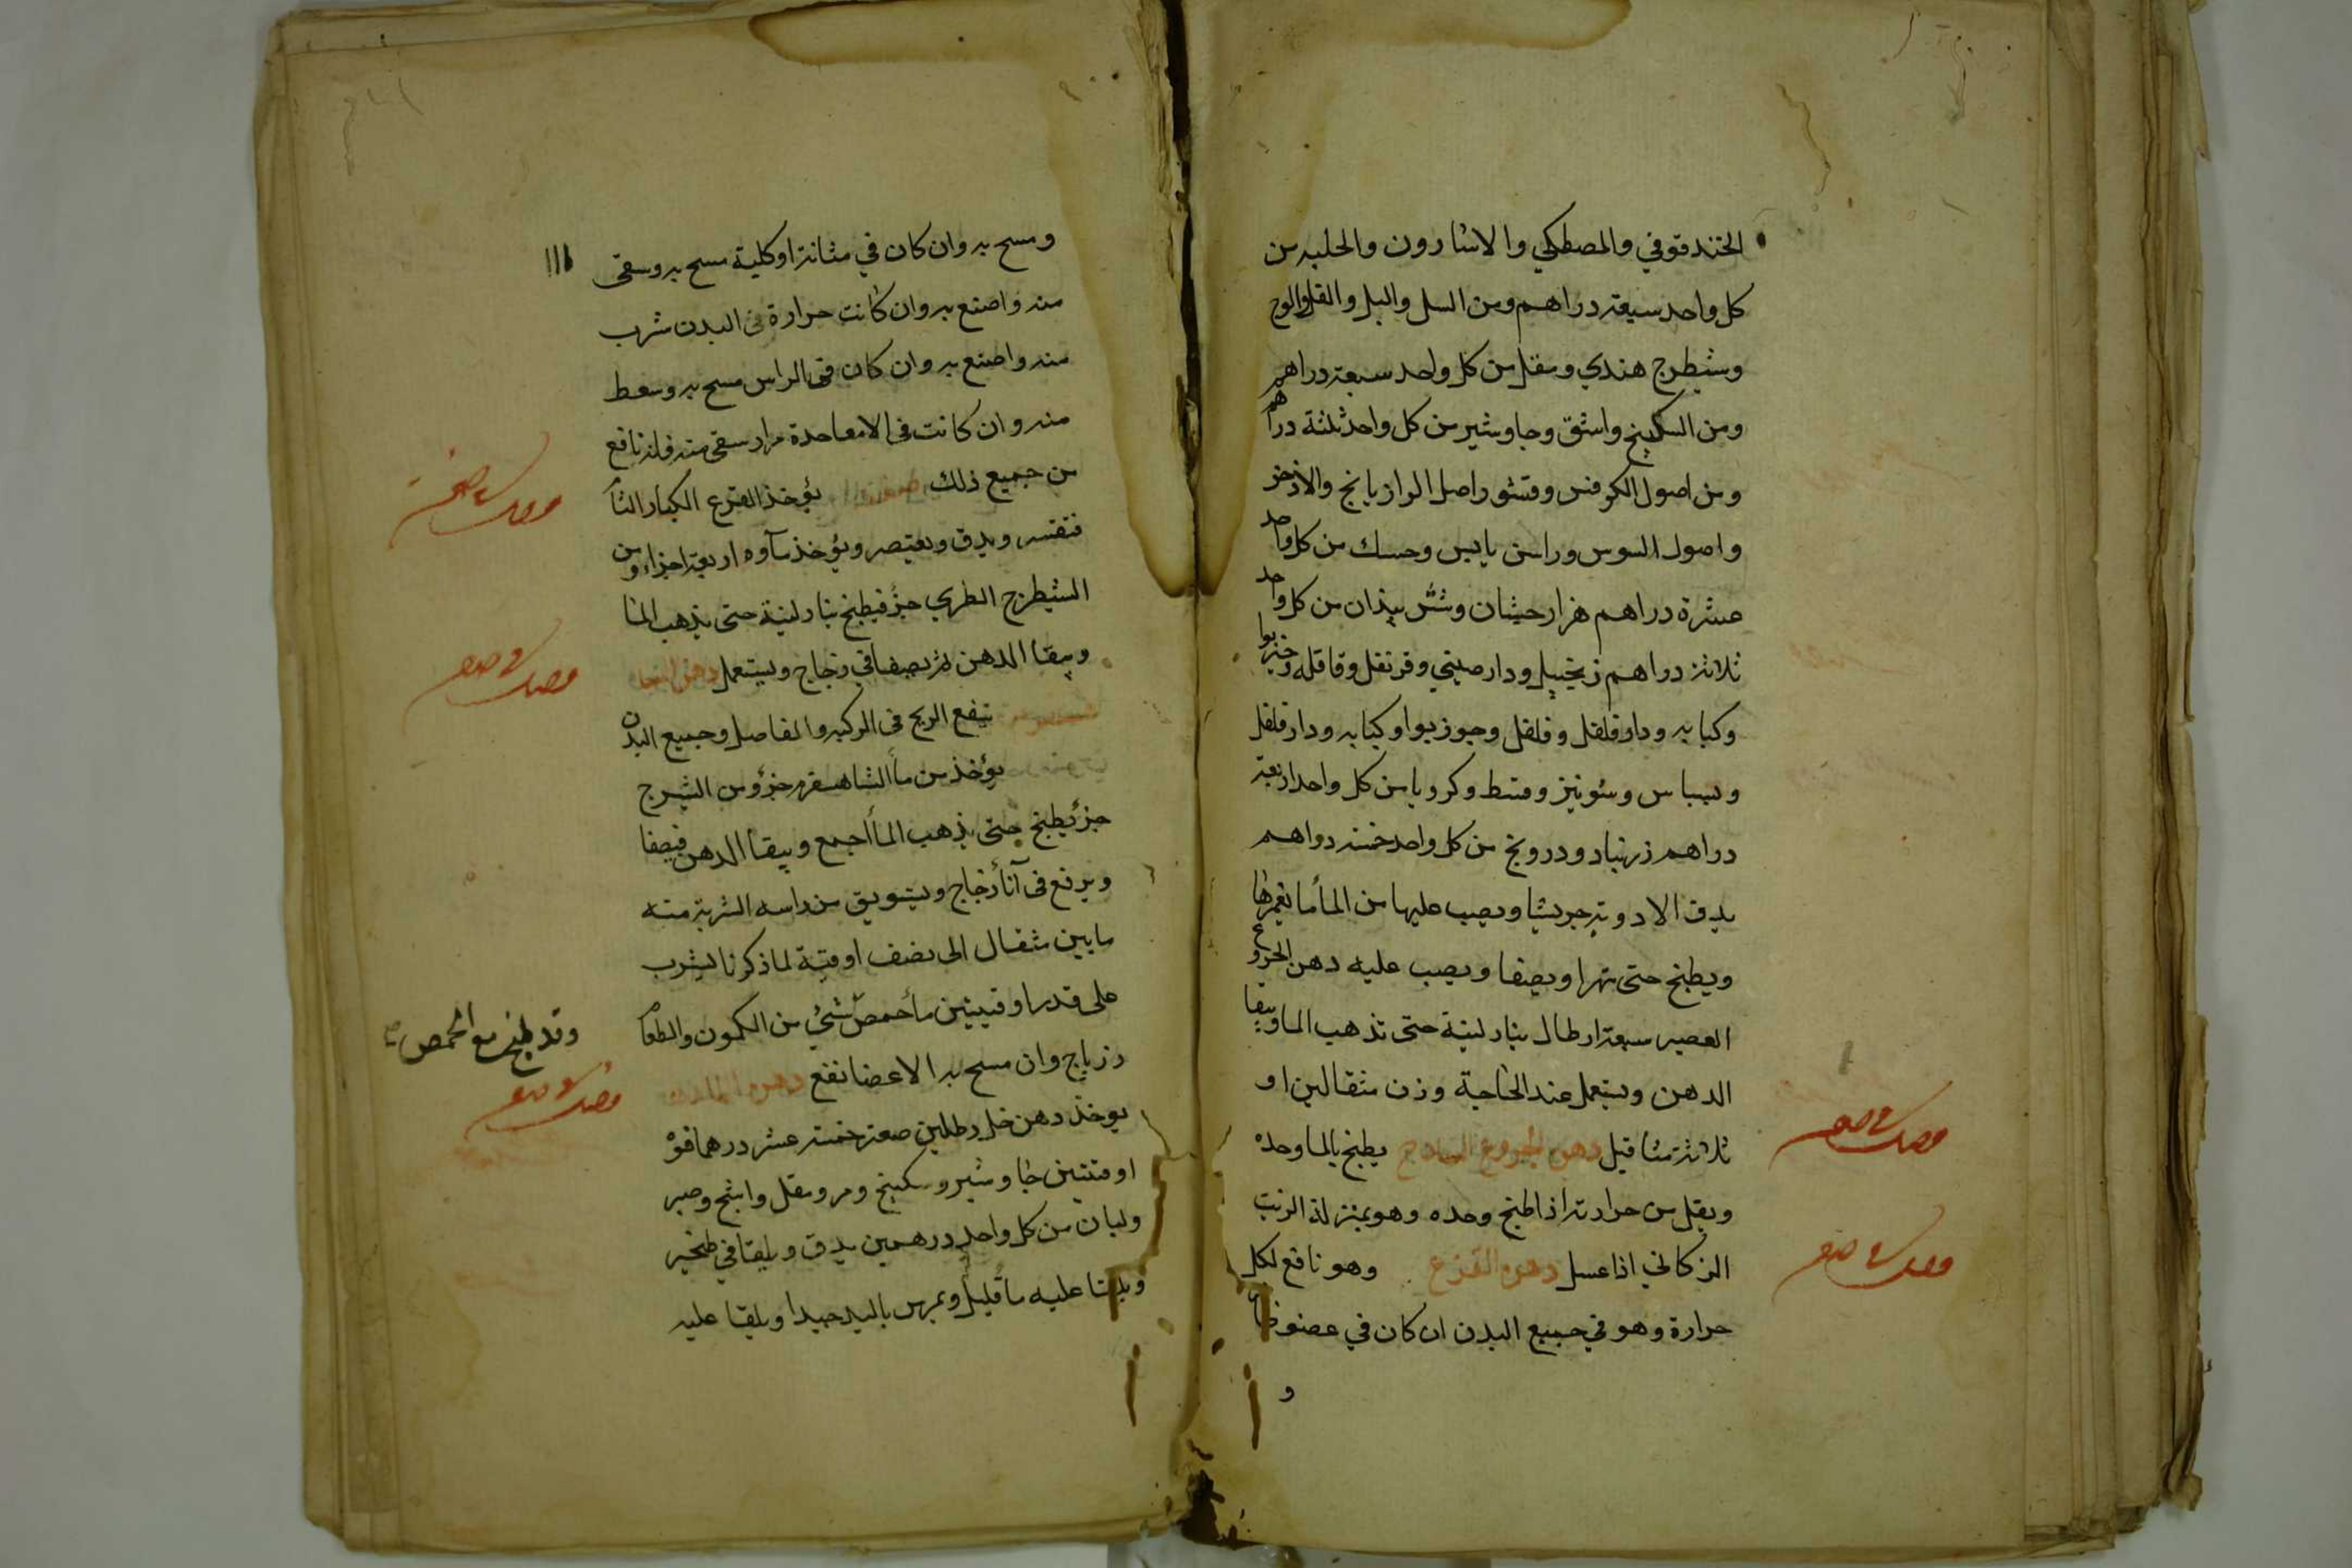 الحندقوقي والمصطكي والاشارون والحلبه من
كل واحد سبعة دراهم ومن السل والبل والفل والوج
وشيطرج هندي ومقل من كل واحد سبعة دراهم
ومن السكبينج واشق وجاوشير من كل واحد ثلثة دراهم
ومن اصول الكرفس وقشور اصل الرازيانج والاذخر
واصول السوس وراسن يابس وحسك من كل واحد
عشرة دراهم هزارجشان وششبندان من كل واحد
ثلاثة دراهم زنجبيل ودارصيني وقرنفل وقاقله وخيربوا
وكبابه ودارفلفل وفلفل وجوزبوا وكبابه ودارفلفل
وبسباس وشونيز وقسط وكرويا من كل واحد اربعة
دراهم زرنباد ودرونج من كل واحد خمسة دراهم
يدق الادوية جريشا ويصب عليها من الماء ما يغمرها
ويطبخ حتى تهرا ويصفا ويصب عليه دهن الخروع
العصير سبعة ارطال بنار لينة حتى تذهب الما ويبقا
الدهن ويستعمل عند الحاجة وزن مثقالين او
ثلاثة مثاقيل دهن الخروع الساذج يطبخ بالما وحده
ويقل من حرارته اذا طبخ وحده وهو بمنزلة الزيت
الركابي اذا عسل دهن القرع وهو نافع لكل
حرارة وهو في جميع البدن ان كان في عضو
و
ومسح به وان كان في مثانة او كلية مسح به وسقى
منه واصنع به وان كانت حرارة في البدن شرب
منه واصنع به وان كان في الراس مسح به وسعط
منه وان كانت في الامعا حدة مرار سقى منه فانه نافع
من جميع ذلك يؤخذ القرع الكبار
فتقشر ويدق ويعتصر ويؤخذ مآوه اربعة اجزاء ومن
الشيطرج الطري جزؤ فيطبخ بنار لينة حتى يذهب الما
ويبقا الدهن ثم يصفا في زجاج ويستعمل دهن
ينفع الريح في الركبه والمفاصل وجميع البدن
يؤخذ من مأ الشاهسفرم جزؤ ومن الشيرج
جزؤ يطبخ حتى يذهب المأ اجمع ويبقا الدهن فيصفا
ويرفع في آنأ زجاج ويستويق من راسه الشربة منه
ما بين مثقال الى نصف اوقية لما ذكرنا يشرب
على قدر اوقيتين مأ حمص شئ من الكمون والطعا
زرباج وان مسح به الاعضا نفع دهن
وقد طبخ مع الحمص
يوخذ دهن خل رطلين صعتر خمسة عشر درهما فوة
اوقيتين جاوشير وسكبينج ومر ومقل واشج وصبر
ولبان من كل واحد درهمين يدق ويلقا في طنجير
ويلقا عليه مأ قليل ويمرس باليد جيدا ويلقا عليه